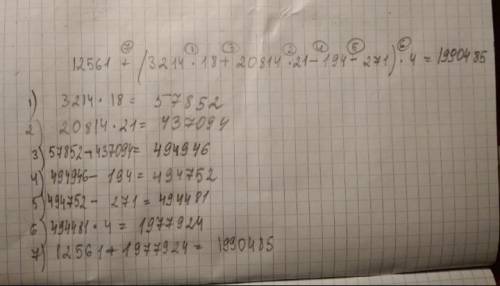 12561 + (3214 · 18 + 20814 · 21 - 194 - 271) · 4 = 1990485
1) 3214 · 18 = 57852
2) 20814 · 21 = 437094
3) 57852 + 437094 = 494946
4) 494946 - 194 = 494752
5) 494752 - 271 = 494481
6) 494481 · 4 = 1977924
7) 12561 + 1977924 = 1990485